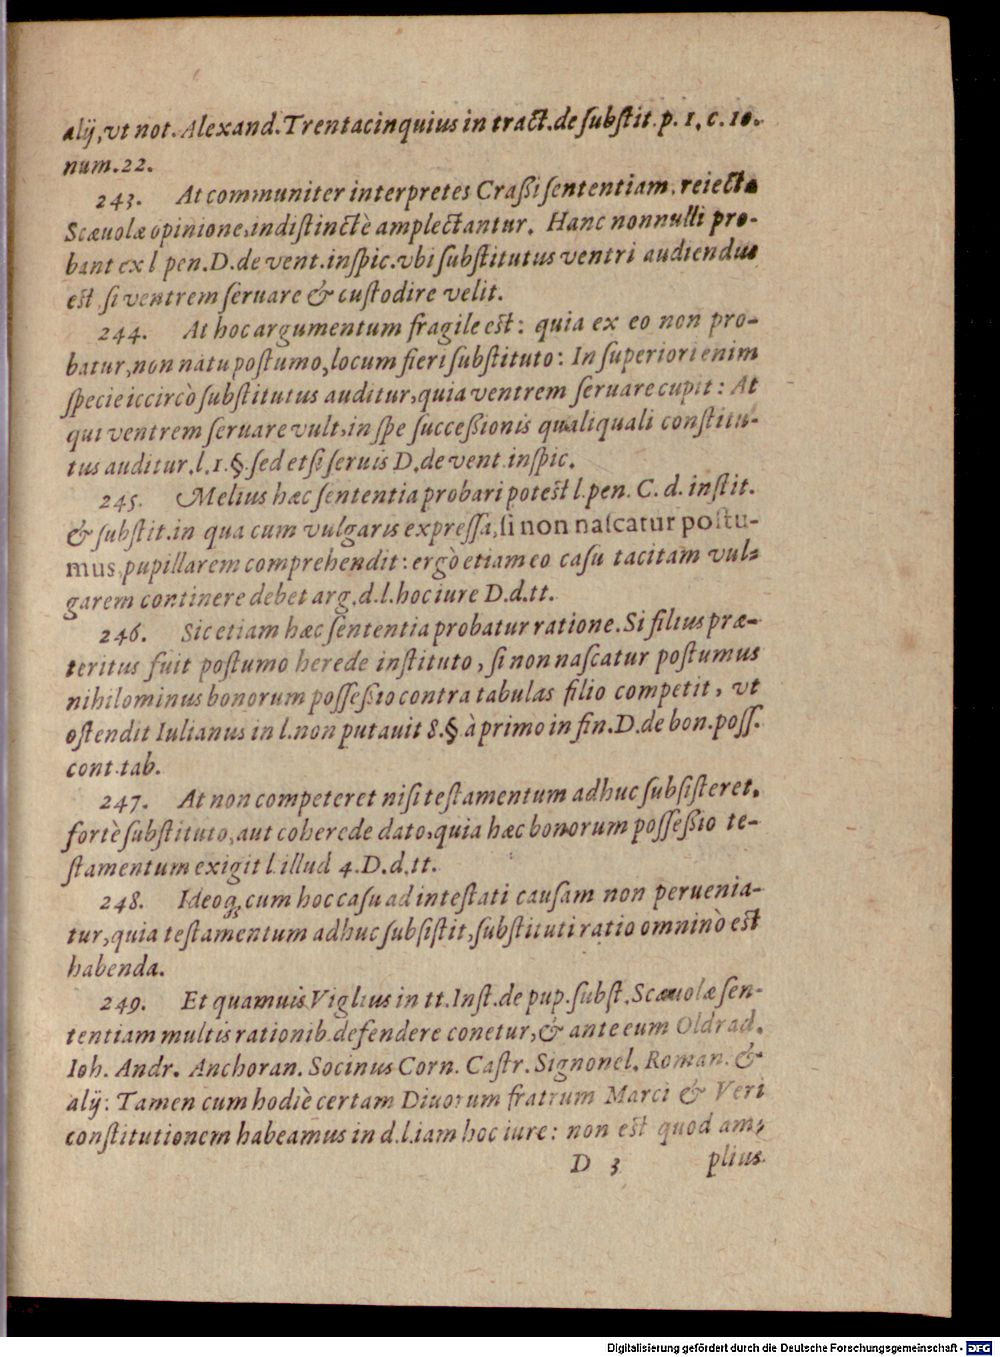 alij, vt not. Alexand. Trentacinquius in tract. de substit. p. 1. c. 10.
num. 22.
243. At communiter interpretes Craßi sententiam, reiecta
Scæuolæ opinione, indistinctè amplectantur. Hanc nonnulli pro-
bant ex l pen. D. de vent. inspic. vbi substitutus ventri audiendus
est si ventrem seruare & custodire velit.
244. At hoc argumentum fragile est: quia ex eo non pro-
batur, non natu postumo, locum fieri substituto: In superiori enim
specie iccircò substitutus auditur, quia ventrem seruare cupit: At
qui ventrem seruare vult, in spe succeßionis qualiquali constitu-
tus auditur. l. 1. §. sed et si seruis D. de vent. inspic.
245. Melius hæc sententia probari potest l. pen. C. d. instit.
& substit. in qua cum vulgaris expressa, si non nascatur postu-
mus, pupillarem comprehendit: ergò etiam eo casu tacitam vul-
garem continere debet arg. d. l. hoc iure D. d. tt.
246. Sic etiam hæc sententia probatur ratione. Si filius præ-
teritus fuit postumo herede instituto, si non nascatur postumus
nihilominus bonorum posseßio contra tabulas filio competit, vt
ostendit Iulianus in l. non putauit 8. § à primo in fin. D. de bon. poss.
cont. tab.
247. At non competeret nisi testamentum adhuc subsisteret,
fortè substituto, aut coherede dato, quia hæc bonorum posseßio te-
stamentum exigit l. illud 4. D. d. tt.
248. Ideoq; cum hoc casu ad intestati causam non peruenia-
tur, quia testamentum adhuc subsistit, substituti ratio omninò est
habenda.
249. Et quamuis Viglius in tt. Inst. de pup. subst. Scæuolæ sen-
tentiam multis rationib. defendere conetur, & ante eum Oldrad.
Ioh. Andr. Anchoran. Socinus Corn. Castr. Signonel. Roman. &
alij: Tamen cum hodiè certam Diuorum fratrum Marci & Veri
constitutionem habeamus in d. l. iam hoc iure: non est quod am-
D 3 plius
Digitalisierung gefördert durch die Deutsche Forschungsgemeinschaft - DFG